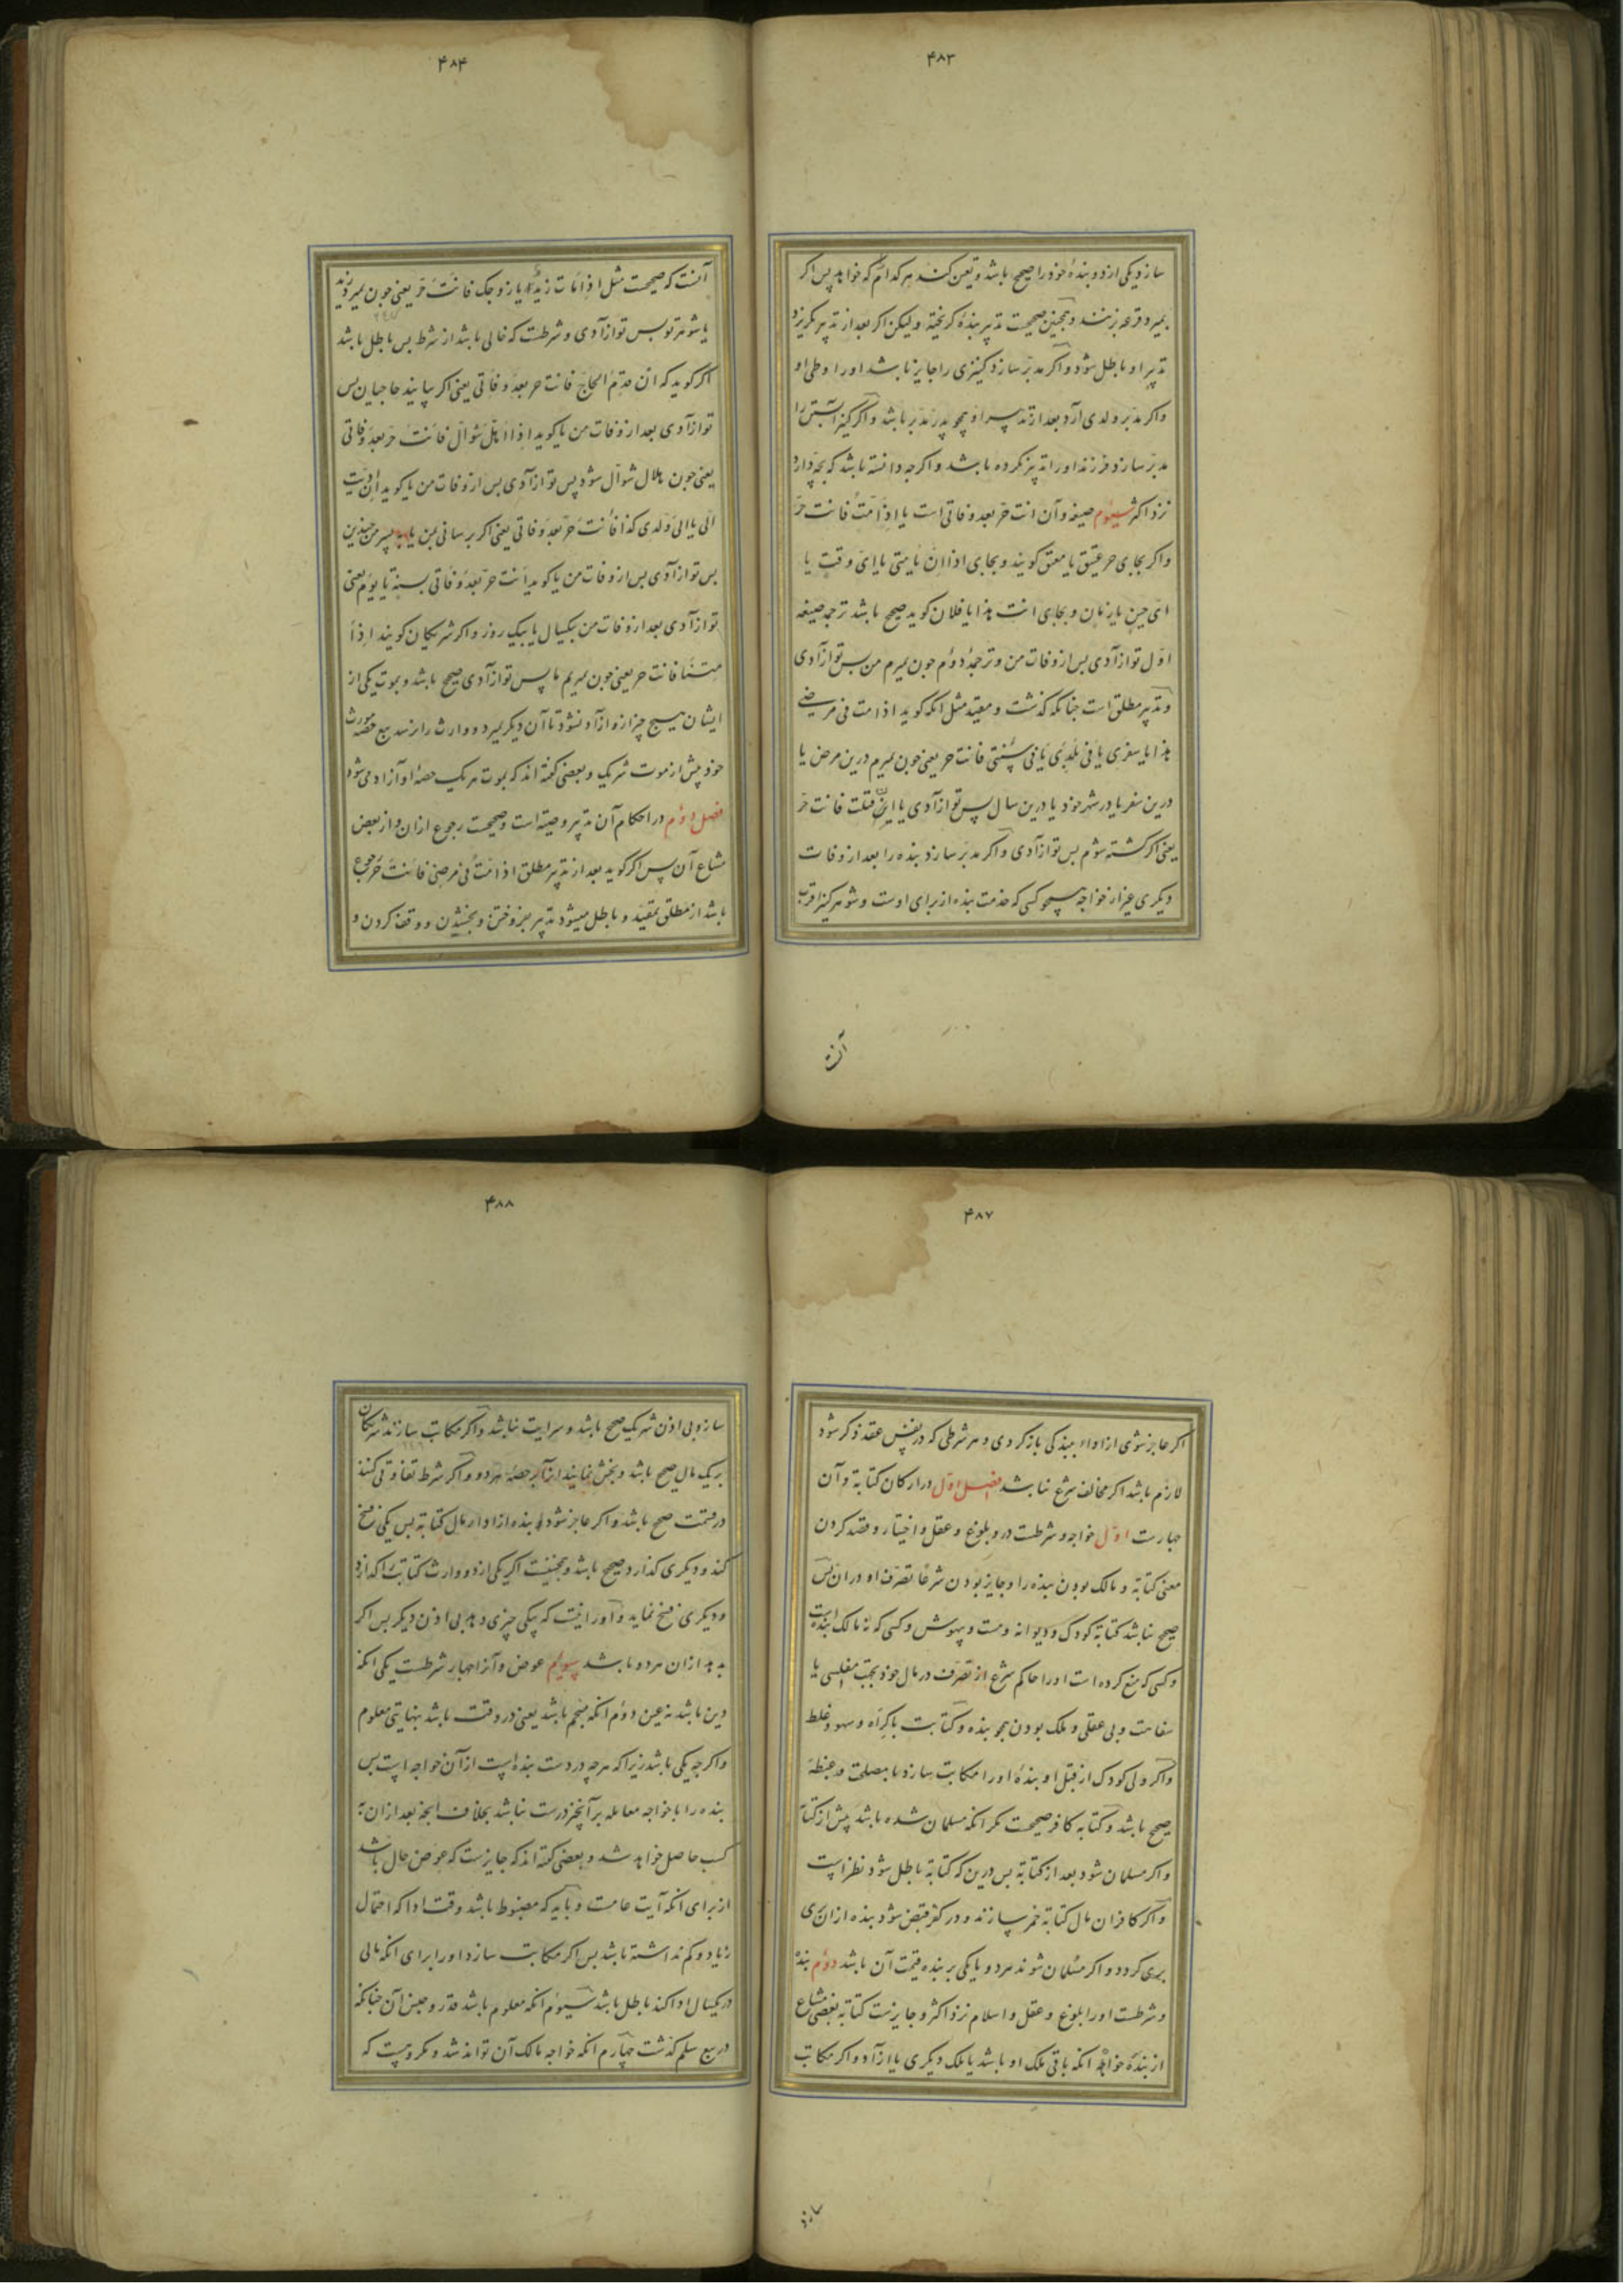 ۴۸۳
سازد یکی از دو بندهٔ خود را صحیح باشد و تعیین کنند هر کدام که خواهد پس اگر
بمیرد قرعه زنند و همچنین صحیحست تدبیر بندهٔ گریخته و لیکن اگر بعد از تدبیر بگریزد
تدبیر او باطل شود و اگر مدبر سازد کنیزی را جایز باشد او را وطی او
و اگر مدبر ولدی آرد بعد از تدبیر او همچو پدر مدبر باشد و اگر کنیز آبستن را
مدبر سازد فرزند او را تدبیر نکرده باشد و اگرچه دانسته باشد که بچه دارد
نزد اکثر سیوم صیغه و آن انت حر بعد وفاتی است یا اذا مت فانت حر
و اگر بجای حر عتیق یا معتق گویند و بجای اذا ان یا متی یا ای وقت یا
ای حین یا زمان و بجای انت هذا یا فلان گوید صحیح باشد ترجمه صیغه
اول تو ازآدی پس از وفات من و ترجمهٔ دوم چون بمیرم من پس تو ازآدی
و تدبیر مطلق است چنانکه گذشت و مقید مثل انکه گوید اذا مت فی مرضی
هذا یا سفری یا فی بلدی یا فی سنتی فانت حر یعنی چون بمیرم درین مرض یا
درین سفر یا در شهر خود یا درین سال پس تو ازآدی یا ان قتلت فانت حر
یعنی اگر کشته شوم پس تو ازآدی و اگر مدبر سازد بنده را بعد از وفات
دیگری غیر از خواجه همچو کسی که خدمت بنده از برای اوست و شوهر کنیز اقرب
آنست
۴۸۴
آنست که صحیحست مثل اذا مات زید یا زوجک فانت حر یعنی چون بمیرد زید
یا شوهر تو پس تو ازآدی و شرطست که خالی باشد از شرط پس باطل باشد
اگر گوید که ان قدم الحاج فانت حر بعد وفاتی یعنی اگر بیایند حاجیان پس
تو ازآدی بعد از وفات من یا گوید اذا اهل شوال فانت حر بعد وفاتی
یعنی چون هلال شوال شود پس تو ازآدی پس از وفات من یا گوید ان ادیت
الی یا الی ولدی کذا فانت حر بعد وفاتی یعنی اگر برسانی بمن یا به پسر من چندین
پس تو ازآدی پس از وفات من یا گوید انت حر بعد وفاتی بسنة یا یوم یعنی
تو ازآدی بعد از وفات من بیکسال یا بیک روز و اگر شریکان گویند اذا
متنا فانت حر یعنی چون بمیریم ما پس تو ازآدی صحیح باشد و بموت یکی از
ایشان هیچ چیز ازو ازآد نشود تا آن دیگر بمیرد و وارث را نرسد بیع حصهٔ مورث
خود پیش از موت شریک و بعضی گفته اند که بموت هر یک حصهٔ او آزاد می شود
فصل دوم در احکام آن تدبیر وصیة است و صحیحست رجوع ازان و از بعض
مشاع آن پس اگر گوید بعد از تدبیر مطلق اذا مت فی مرضی فانت حر رجوع
باشد از مطلق بمقید و باطل میشود تدبیر بفروختن و بخشیدن و وقف کردن و
۴۸۷
اگر عاجز شوی از اداء ببندگی باز گردی و هر شرطی که در نفس عقد ذکر شود
لازم باشد اگر مخالف شرع نباشد فصل اول در ارکان کتابة و آن
چهارست اول خواجه و شرطست درو بلوغ و عقل و اختیار و قصد کردن
معنی کتابة و مالک بودن بنده را و جایز بودن شرعا تصرف او دران پس
صحیح نباشد کتابة کودک و دیوانه و مست و بیهوش و کسی که نه مالک بنده است
و کسی که منع کرده است او را حاکم شرع از تصرف در مال خود بجهت مفلسی یا
سفاهت و بی عقلی و ملک بودن همچو بنده و کتابت باکراه و سهو و غلط
و اگر ولی کودک از قبل او بندهٔ او را مکاتب سازد با مصلحت و غبطه
صحیح باشد و کتابة کافر صحیحست مگر انکه مسلمان شده باشد پیش از کتابة
و اگر مسلمان شود بعد از کتابة پس درین که کتابة باطل شود نظر است
و اگر کافران مال کتابة خمر سازند و در کفر قبض شود بنده ازان بری
بری گردد و اگر مسلمان شوند هر دو یا یکی بر بنده قیمت آن باشد دوم بنده
و شرطست او را بلوغ و عقل و اسلام نزد اکثر و جایزست کتابة بعضی مشاع
از بندهٔ خواه انکه باقی ملک او باشد یا ملک دیگری یا ازآد و اگر مکاتب
سازد
۴۸۸
سازد بی اذن شریک صحیح باشد و سرایت نباشد و اگر مکاتب سازند شریکان
بریک مال صحیح باشد و بخش نمایند انرا بر حصهٔ هر دو و اگر شرط تفاوتی کنند
در قسمت صحیح باشد و اگر عاجز شود بنده از اداء مال کتابة پس یکی فسخ
کند و دیگری گذارد صحیح باشد و همچنینست اگر یکی از دو وارث کتابت را گذارد
و دیگری فسخ نماید و او را نیست که بیکی چیزی دهد بی اذن دیگر پس اگر
بدهد ازان هر دو باشد سیوم عوض و آنرا چهار شرطست یکی انکه
دین باشد نه عین دوم انکه منجم باشد یعنی در وقت باشد بنهایتی معلوم
و اگرچه یکی باشد زیرا که هرچه در دست بنده است ازآن خواجه است پس
بنده را با خواجه معامله بر آنچیز درست نباشد بخلاف انچه بعد ازان به
کسب حاصل خواهد شد و بعضی گفته اند که جایزست که عوض حال باشد
از برای انکه آیت عامست و باید که مضبوط باشد وقت ادا که احتمال
زیاد و کم نداشته باشد پس اگر مکاتب سازد او را برای انکه مالی
در یکسال ادا کند باطل باشد سیوم انکه معلوم باشد قدر و جنس آن چنانکه
در بیع سلم گذشت چهارم انکه خواجه مالک آن تواند شد و مکروهست که